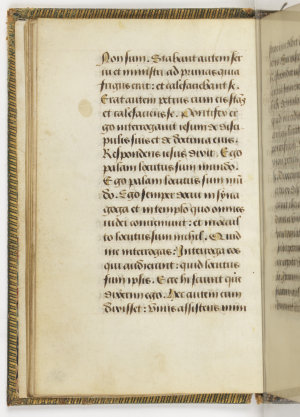 Non sum. Stabant autem ser
ui et ministri ad prunas quia
frigus erat: et calefaciebant se.
Erat autem petrus cum eis stãs
et calefaciens se. Pontifex er
go interrogauit iesum de disci
pulis suis et de doctrina eius.
Respondens iesus dixit. Ego
palam locutus sum mundo.
Ego palam locutus sum mũ
do. Ego semper docui in syna
goga et in templo quo omnes
iudei conueniunt: et in occul
to locutus sum nichil. Quid
me interrogas: Interroga eos
qui audierunt: quid locutus
sum ipsis. Ecce hi sciunt que
dixerim ego. Hec autem cum
dixisset: vnus assistens mini